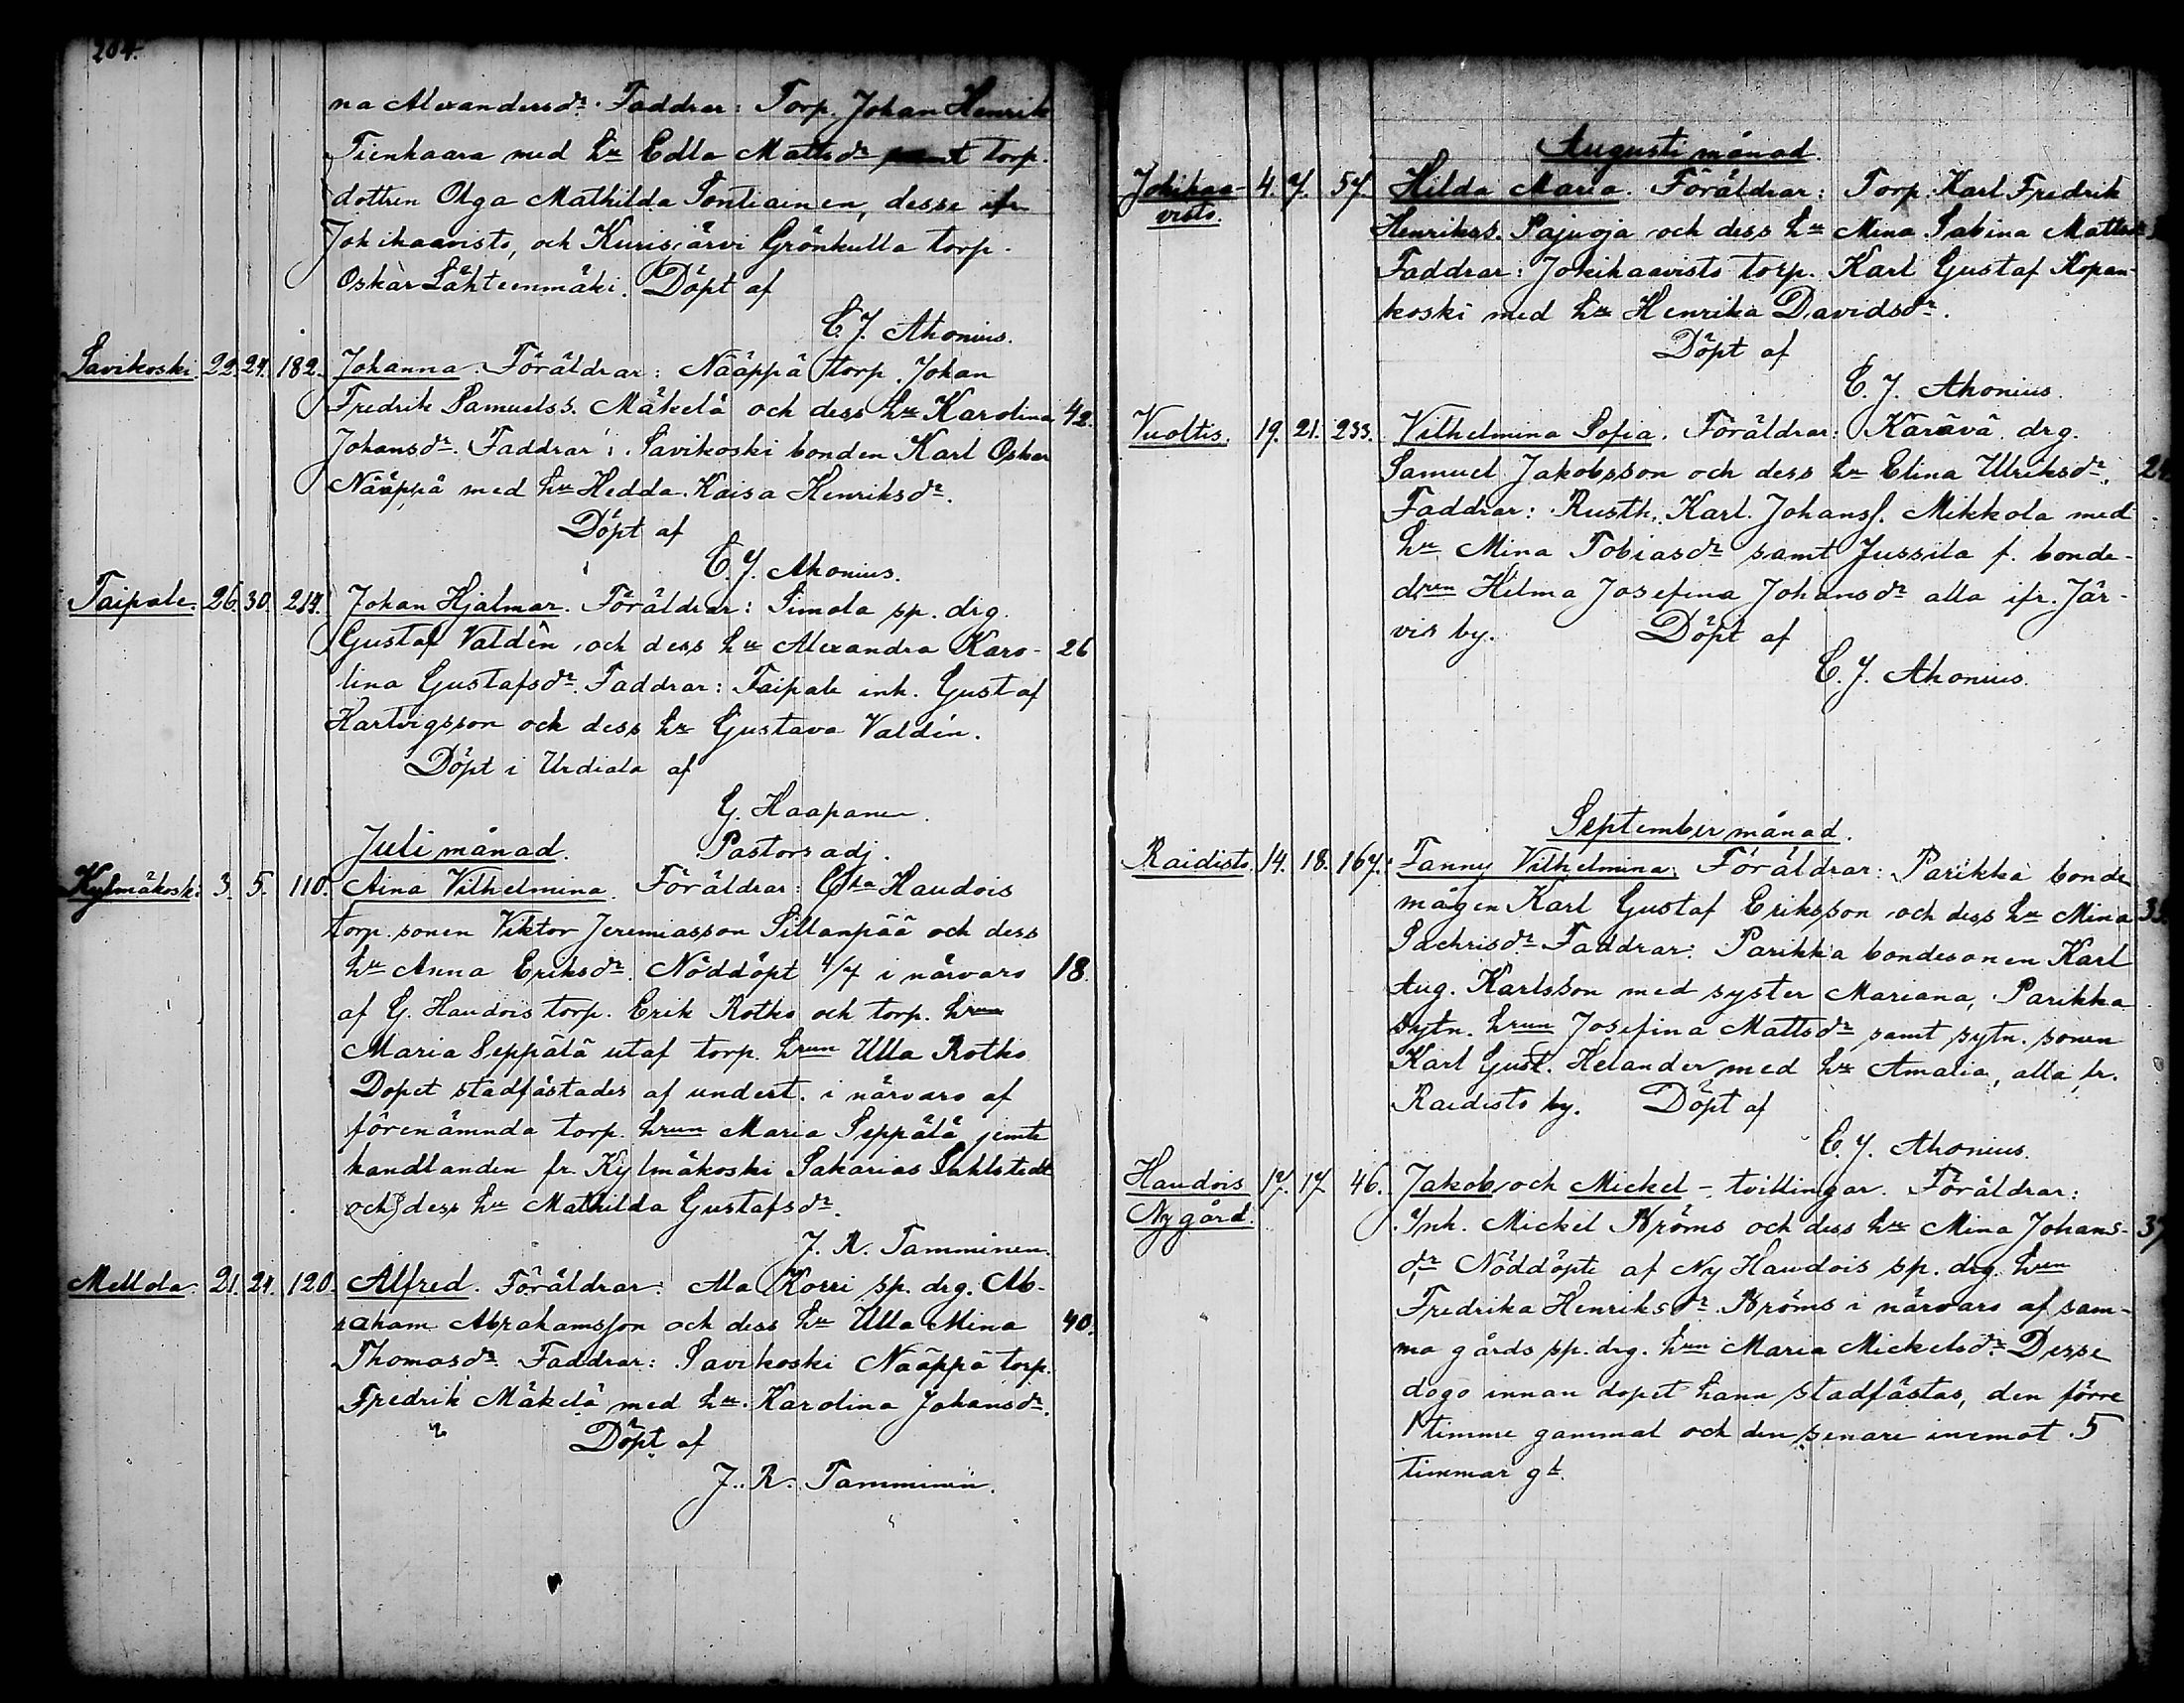 204.
na Alexandersdr. Faddrar: Torp. Johan Henrik
Tienhaara med hu Edla Mattsdr torp.
dottren Olga Mathilda Sontiainen, desse ifr
Jokihaavisto, och Kurisjärvi Grönkulla torp.
Oskar Lähteenmäki. Döpt af
C. J. Ahonius.
Savikoski. 22. 24. 182. Johanna. Föräldrar: Nääppä torp. Johan
Fredrik Samuelss. Mäkelä och dess hu Karolina 42.
Johansdr. Faddrar: Savikoski bonden Karl Oskar
Nääppä med hu Hedda Kaisa Henriksdr.
Döpt af
C. J. Ahonius.
Taipale. 26. 30. 214. Johan Hjalmar. Föräldrar: Simola sp. drg.
Gustaf Valdén och dess hu Alexandra Karo- 26
lina Gustafsdr. Faddrar: Taipale inh. Gustaf
Hartvigsson och dess hu Gustava Valdén.
Döpt i Urdiala af
G. Haapanen.
Juli månad. Pastors adj.
Kylmäkoski 3. 5. 110. Aina Vilhelmina. Föräldrar: Haudois
torp. sonen Viktor Jeremiasson Sillanpää och dess
hu Anna Eriksdr. Nöddöpt 4/7 i närvaro 18.
af G. Haudois torp. Erik Rotko och torp. hrun
Maria Seppälä utaf torp. hrun Ulla Rotko
Dopet stadfästades af undert. i närvaro af
förenämnda torp. hrun Maria Seppälä jemte
handlanden fr. Kylmäkoski Sakarias Sahlstedt
och dess hu Mathilda Gustafsdr.
J. R. Tamminen.
Mellola. 21. 24. 120. Alfred. Föräldrar: Ala Korri sp. drg. Ab-
raham Abrahamsson och dess hu Ulla Mina 40.
Thomasdr. Faddrar: Savikoski Nääppä torp.
Fredrik Mäkelä med hu Karolina Johansdr.
Döpt af
J. R. Tamminen.
Augusti månad.
Jokihaa- 4. 7. 57. Hilda Maria. Föräldrar: Torp. Karl Fredrik
visto. Henrikss. Pajuoja och dess hu Mina Sabina Mattsdr
Faddrar: Jokihaavisto torp. Karl Gustaf Kopan-
koski med hu Henrika Davidsdr.
Döpt af
C. J. Ahonius.
Vuoltis. 19. 21. 233. Vilhelmina Sofia. Föräldrar: Kärävä drg.
Samuel Jakobsson och dess hu Elina Ulriksdr.
Faddrar: Rusth. Karl Johanss. Mikkola med
hu Mina Tobiasdr samt Jussila f. bonde-
drun Hilma Josefina Johansdr alla ifr. Jär-
vis by. Döpt af
C. J. Ahonius.
September månad.
Raidisto. 14. 18. 167. Fanny Vilhelmina. Föräldrar: Parikka bonde
mågen Karl Gustaf Eriksson och dess hu Mina
Sachrisdr. Faddrar: Parikka bondesonen Karl
Aug. Karlsson med syster Mariana, Parikka
sytn. hrun Josefina Mattsdr samt sytn. sonen
Karl Gust. Helander med hu Amalia, alla fr.
Raidisto by. Döpt af
C. J. Ahonius.
Haudois 17. 17 46. Jakob och Mickel - tvillingar. Föräldrar:
Nygård. Inh. Mickel Kröms och dess hu Mina Johans- 37
dr. Nöddöpte af Ny Haudois sp. drg. hrun
Fredrika Henriksdr Kröms i närvaro af sam-
ma gårds sp. drg. hrun Maria Mickelsdr. Desse
dogo innan dopet hann stadfästas, den förre
1 timme gammal och den senare inemot 5
timmar gl.